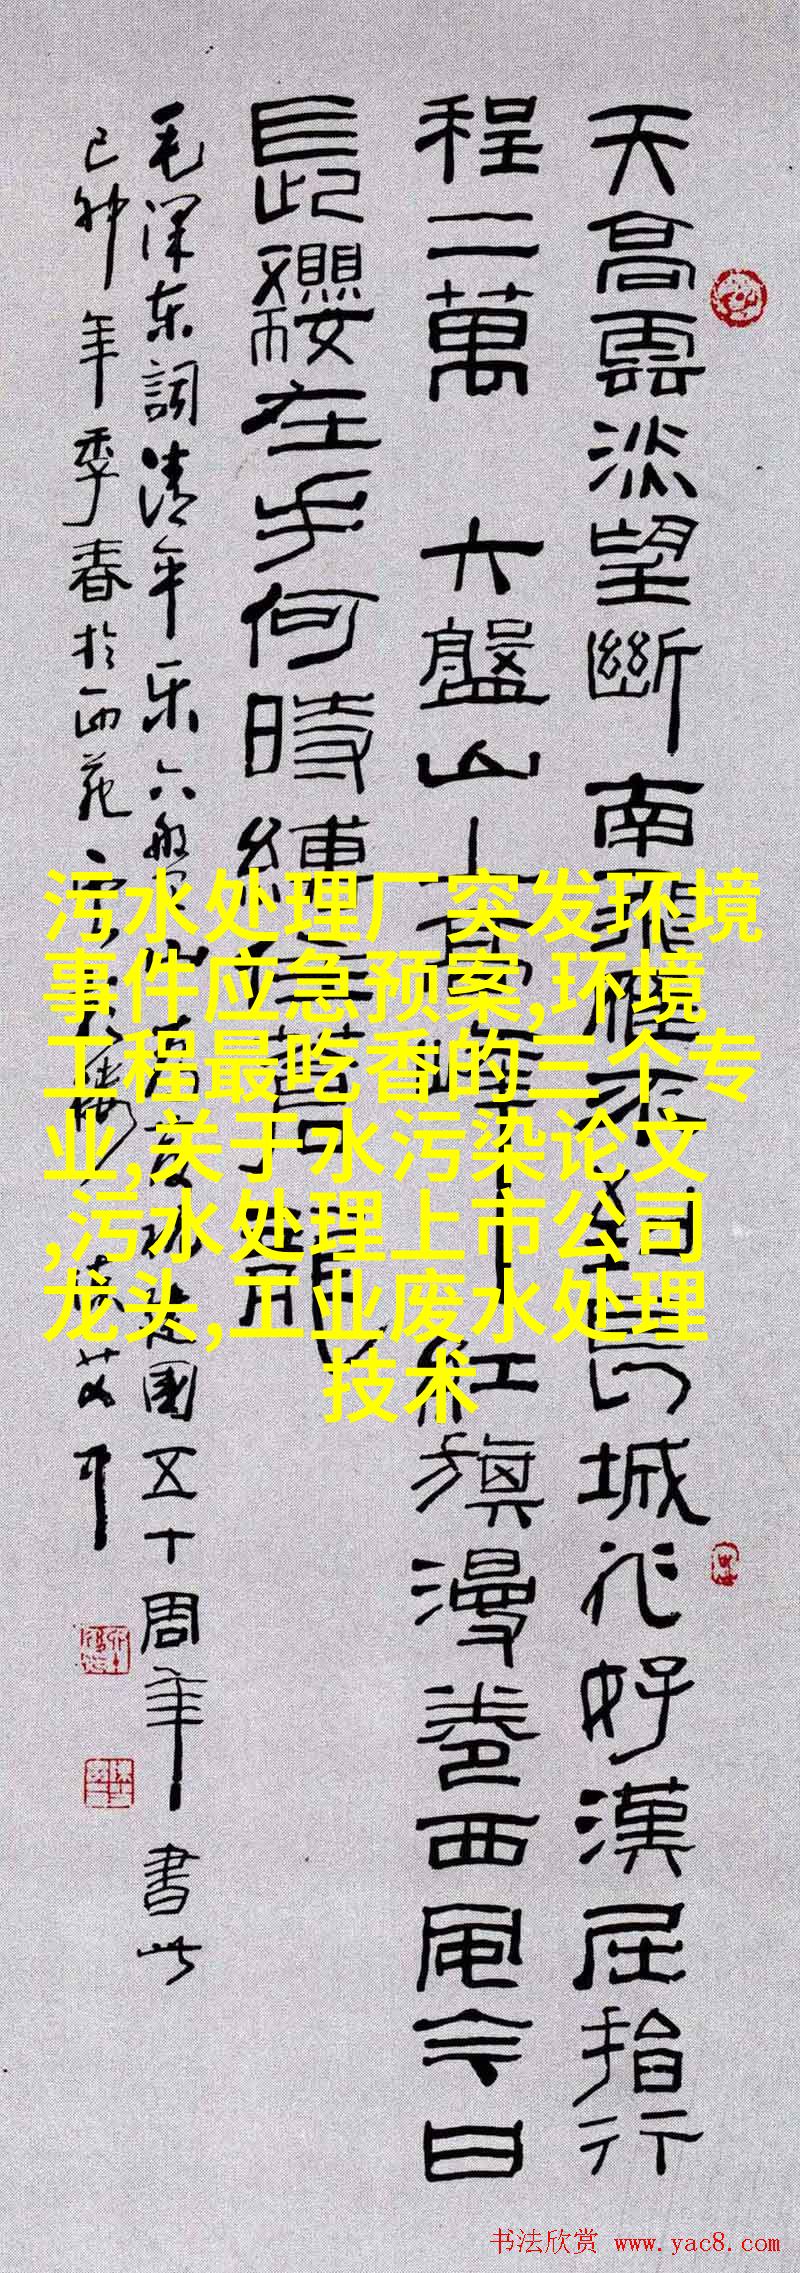 天高雲淡望斷南飛雁不到長城非好漢屈指行
程二萬 六盤山上高峰紅旗漫卷西風今日
長纓在手何時縛住蒼龍
毛澤东詞清平乐六盤山 國五十周年書此
己卯年季春於西苑
污水处理厂突发环境
事件应急预案,环境
工程最吃香的三个专
业,关于水污染论文
,污水处理上市公司
龙头,工业废水处理
技术
书法欣赏 www.yac8.com